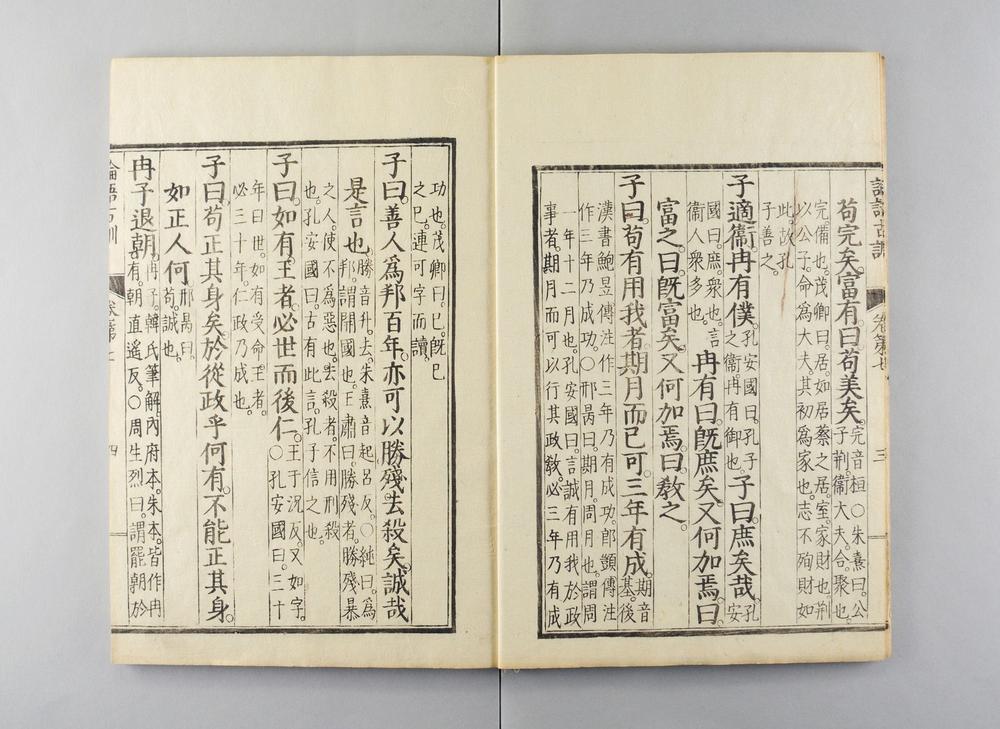 論語古訓 卷第七 三
苟完矣。富有曰苟美矣。
完音桓〇朱熹曰。公
子荆。衞大夫。合。聚也。
完。備也。茂卿曰。居。如居蔡之居。室。家財也。荆
以公子。命爲大夫。其初爲家也。志不殉財如
此。故孔
子善之。
子適衞。冉有僕。
孔安國曰。孔子
之衞。冉有御也。
子曰。庶矣哉。
孔
安
國曰。庶。衆也。言
衞人衆多也。
冉有曰。旣庶矣。又何加焉。曰。
富之。曰。旣富矣。又何加焉。曰。敎之。
子曰。苟有用我者。期月而已可。三年有成。
期音
基。後
漢書鮑昱傳注作三年乃有成功。郎顗傳注
作三年乃成功。〇邢昺曰。期月。周月也。謂周
一年十二月也。孔安國曰。言誠有用我於政
事者。期月而可以行其政敎。必三年乃有成
功也。茂卿曰。已。旣已
之已。連可字而讀
子曰。善人爲邦百年。亦可以勝殘。去殺矣。誠哉
是言也。
勝音升。去。朱熹音起呂反。〇純曰。爲
邦。謂開國也。王肅曰。勝殘者。勝殘暴
之人。使不爲惡也。去殺者。不用刑殺
也。孔安國曰。古有此言。孔子信之也。
子曰。如有王者。必世而後仁。
王于況反。又如字。
〇孔安國曰。三十
年曰世。如有受命王者。
必三十年。仁政乃成也。
子曰。苟正其身矣。於從政乎何有。不能正其身。
如正人何
邢昺曰。
苟。誠也。
冉子退朝。
冉子。韓氏筆解。內府本。朱本。皆作冉
有。朝。直遙反。〇周生烈曰。謂罷朝於
論語古訓 卷第七 四